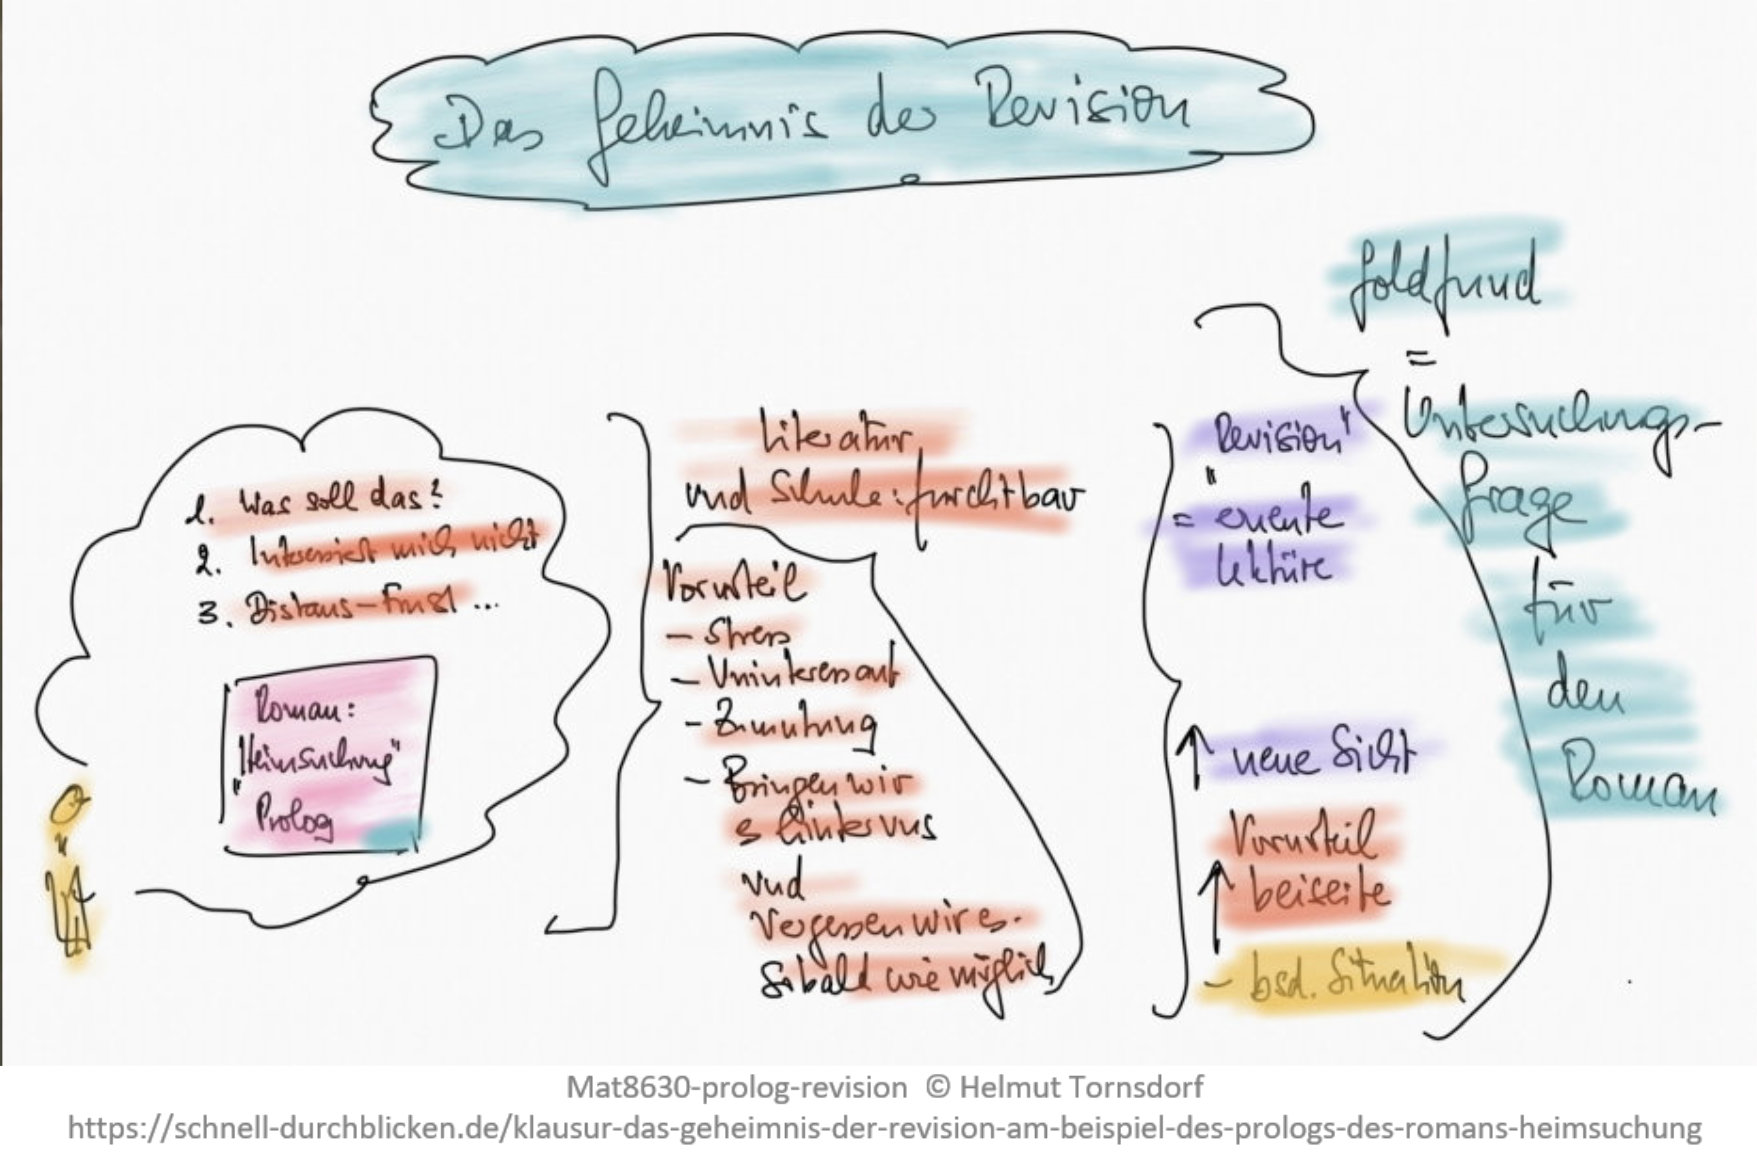 Das Geheimnis der Revision
1. Was soll das?
2. Interessiert mich nicht
3. Distanz-Frust ...
Roman:
"Heimsuchung"
Prolog
Literatur
und Schule: furchtbar
Vorurteil
- Stress
- Uninteressant
- Zumutung
- Bringen wir
es hinter uns
und
Vergessen wir es.
Sobald wie möglich
"Revision"
= erneute
Lektüre
↑ neue Sicht
Vorurteil
↑ beiseite
- bsd. Situation
Goldfund
=
Untersuchungs-
frage
für
den
Roman
Mat8630-prolog-revision © Helmut Tornsdorf
https://schnell-durchblicken.de/klausur-das-geheimnis-der-revision-am-beispiel-des-prologs-des-romans-heimsuchung